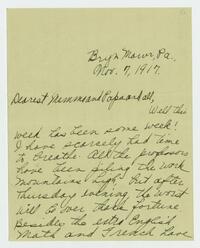 Bryn Mawr, Pa.
Nov. 7, 1917.
Dearest Mamma and Papa and all,
Well this
week has been some week!
I have scarcely had time
to breathe. All the professors
have been piling the work
mountains high. But after
Thursday evening the worst
will be over thank fortune
Besides the usual English
Math and French I have